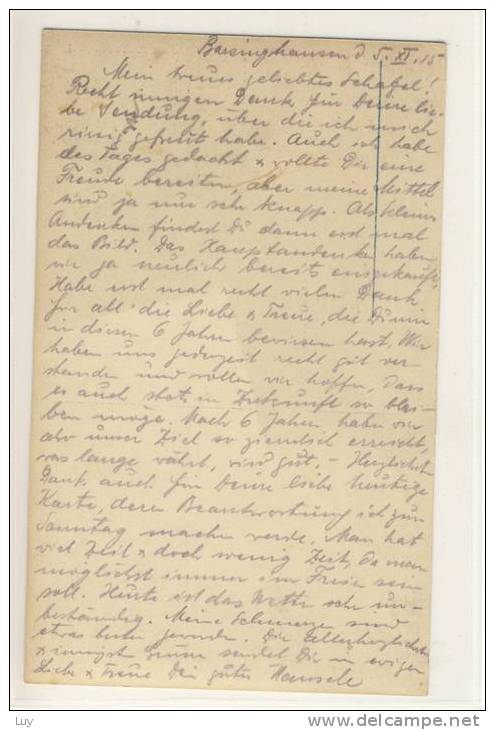 Barsinghausen d. 5. XI. 15
Mein treues geliebtes Schafel!
Recht innigen Dank für Deine lie-
be Sendung, über die ich mich
riesig gefreut habe. Auch ich habe
des Tages gedacht & wollte Dir eine
Freude bereiten, aber meine Mittel
sind ja nur sehr knapp. Als kleines
Andenken findest Du dann erst mal
das Bild. Das Hauptandenken haben
wir ja neulich bereits eingekauft.
Habe erst mal recht vielen Dank
für all' die Liebe & Treue, die Du mir
in diesen 6 Jahren bewiesen hast. Wir
haben uns jederzeit recht gut ver-
standen und wollen wir hoffen, dass
es auch stets in Zukunft so blei-
ben möge. Nach 6 Jahren haben wir
also unser Ziel so ziemlich erreicht,
was lange währt, wird gut. - Herzlichst
Dank auch für Deine liebe heutige
Karte, deren Beantwortung ich zum
Sonntag machen werde. Man hat
viel Zeit & doch wenig Zeit, da man
möglichst immer im Freien sein
soll. Heute ist das Wetter sehr un-
beständig. Meine Schmerzen sind
etwas besser geworden. Die allerherzlichsten
& innigsten Grüsse sendet Dir in ewiger
Liebe & Treue Dein gutes
Luy
delcampe.net